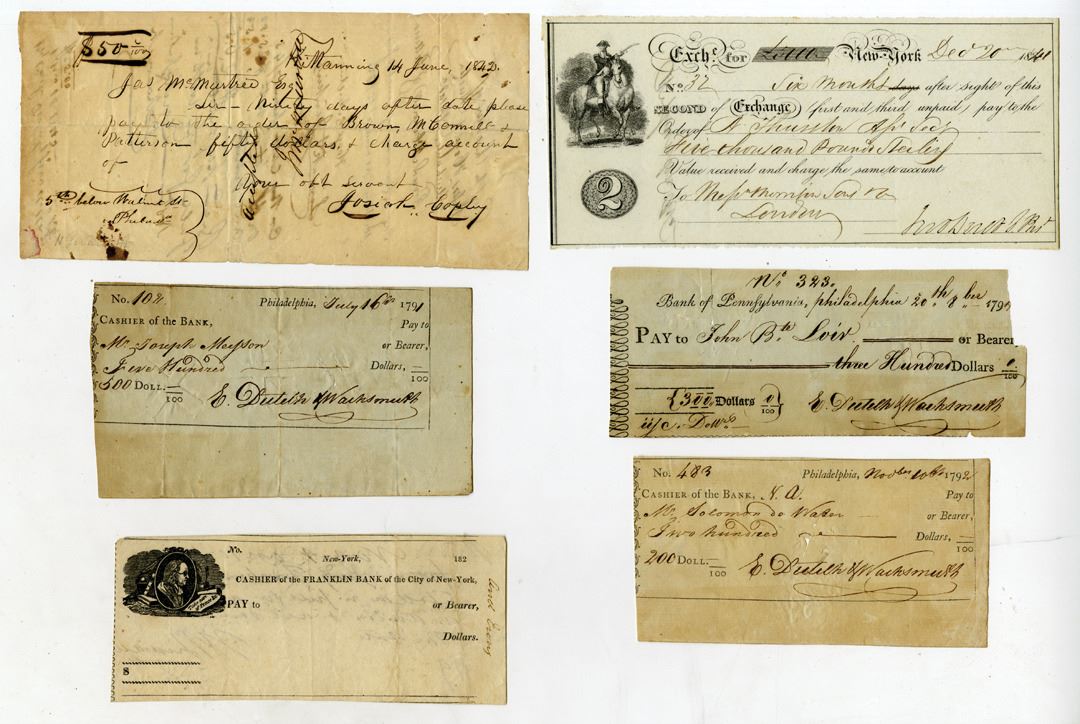 $50 00/100
Manning 14 June, 1842.
Jas McMurtree Esq
Sir – Ninety days after date please
pay to the order of Brown McConnell &
Patterson fifty dollars, & charge account
of
your obt servant
Josiah Copley
5th below Walnut St
Philada
Exche. for New-York Decr 20 1841
No. 32 Six Months days after sight of this
SECOND of Exchange first and third unpaid, pay to the
Order of
Five thousand Pounds Sterling
Value received and charge the same to account
To Messrs
London
2
No. 102 Philadelphia, July 16th 1791
CASHIER of the BANK, Pay to
Mr Joseph or Bearer,
Five Hundred Dollars, /100
500 DOLL. /100
E. Dutilh & Wachsmuth
No. 323.
Bank of Pennsylvania, philadelphia 20th 8ber 179
PAY to John Bte Loir or Bearer
three Hundred Dollars 0/100
{300 Dollars 0/100}
E. Dutilh & Wachsmuth
No. 483 Philadelphia, Novber 10th 1792
CASHIER of the BANK, N. A. Pay to
Mr Solomon or Bearer,
Two hundred Dollars, /100
200 DOLL. /100
E. Dutilh & Wachsmuth
No.
New-York, 182
CASHIER of the FRANKLIN BANK of the City of New-York,
PAY to or Bearer,
Dollars.
$